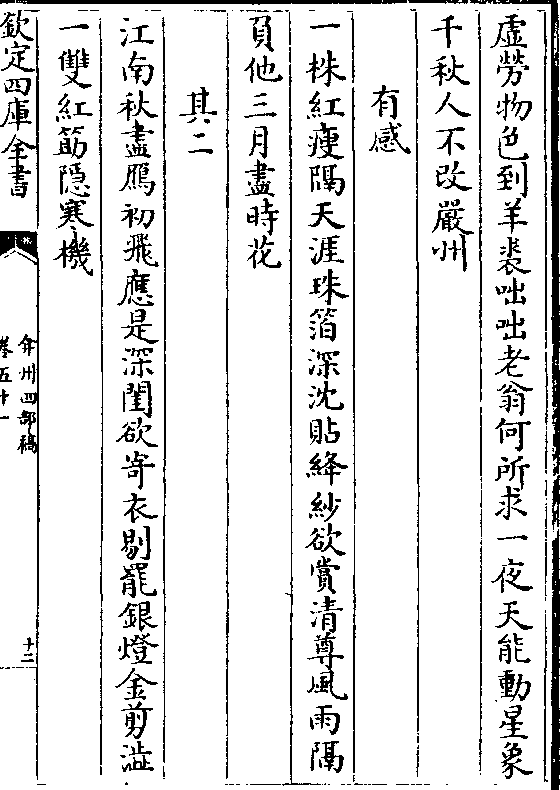 虚勞物色到羊裘咄咄老翁何所求一夜天能動星象
千秋人不改嚴州
有感
一株紅瘦隔天涯珠箔深沈貼絳紗欲賞清尊風雨隔
負他三月盡時花
其二
江南秋盡鴈初飛應是深閨欲寄衣剔罷銀燈金剪澁
一雙紅筯隱寒機
欽定四庫全書
弇州四部稿
卷五十一
十二